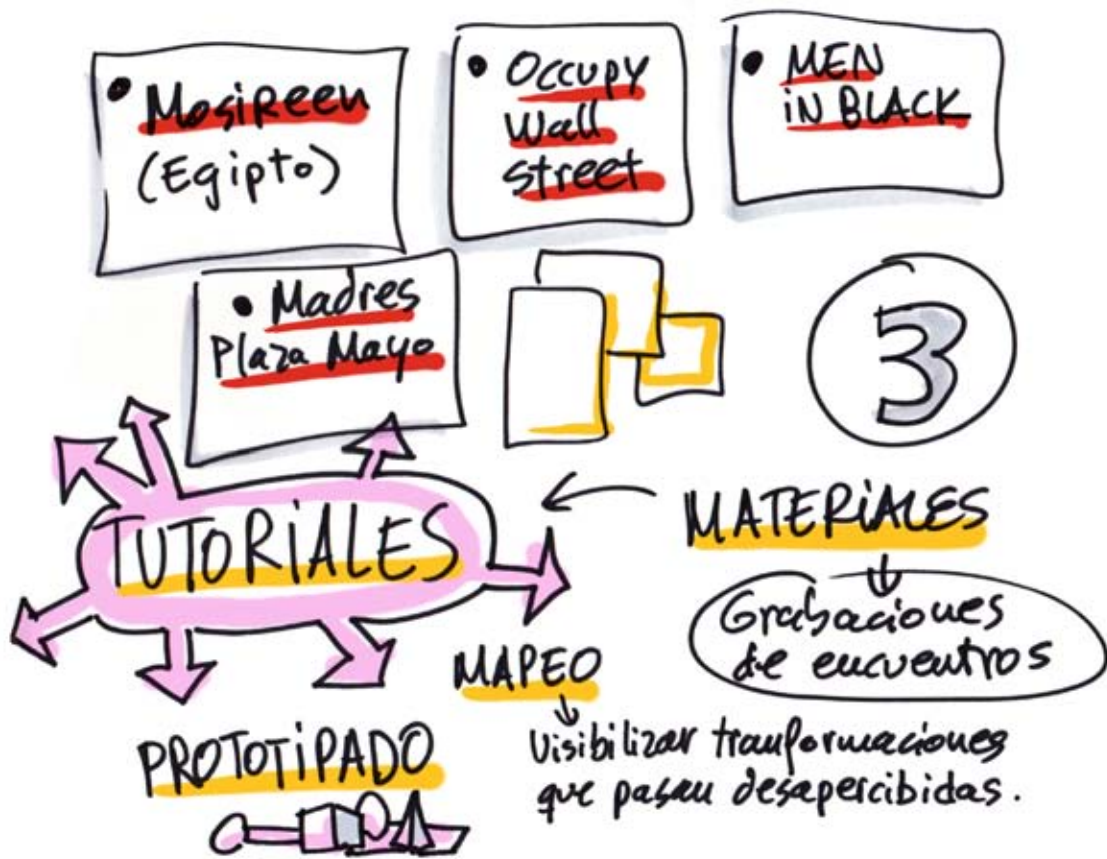 • Mosireen
(Egipto)
• Occupy
Wall
street
• MEN
iN BLACK
• Madres
Plaza Mayo
3
TUTORiALES
MATERiALES
Grabaciones
de encuentros
MAPEO
Visibilizar tranformaciones
que pasan desapercibidas.
PROTOTiPADO